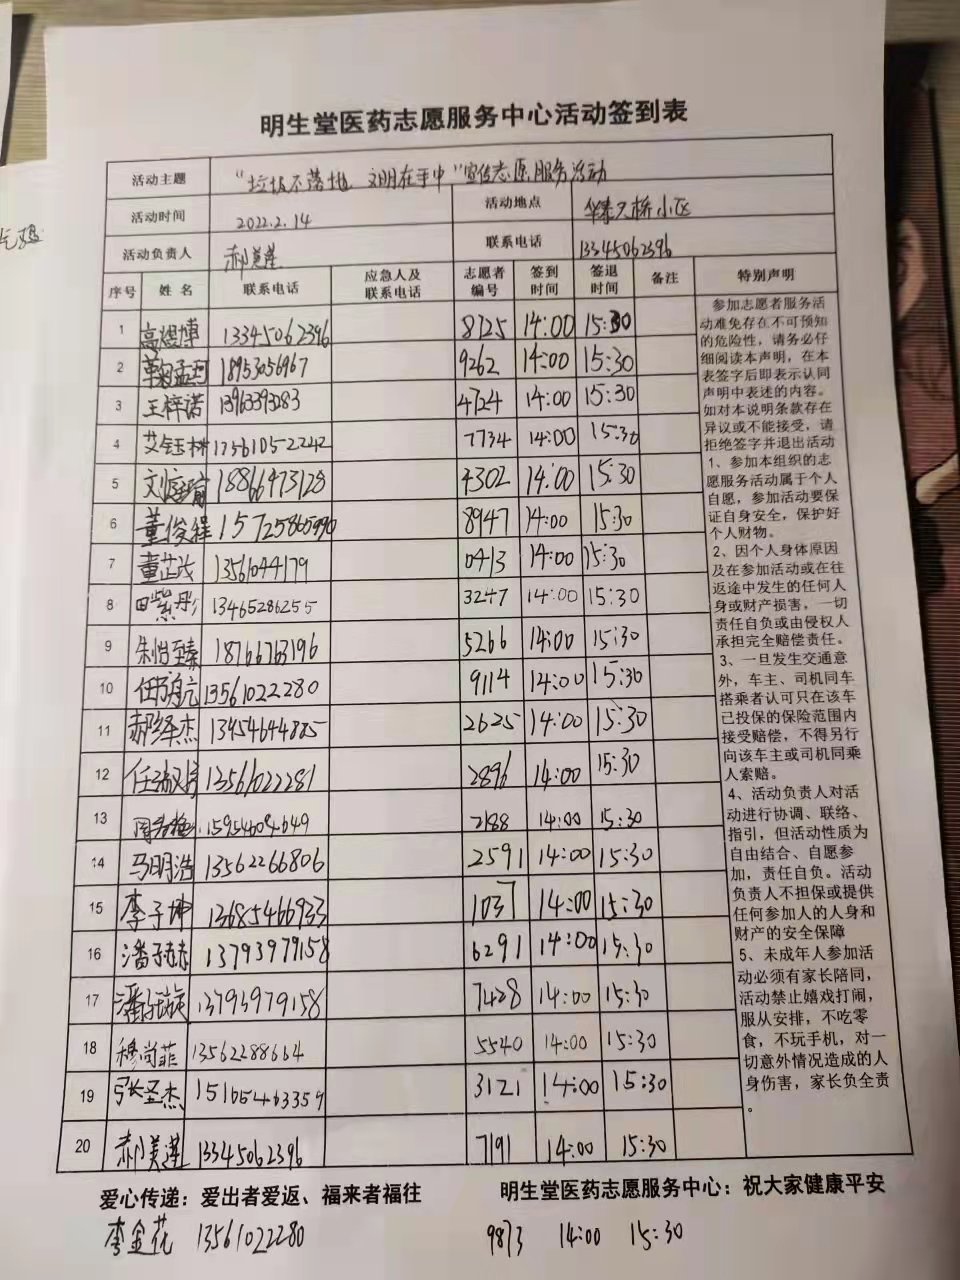 明生堂医药志愿服务中心活动签到表
活动主题 "垃圾不落地 文明在手中"宣传志愿服务活动
活动时间 2022.2.14 活动地点 华泰天桥小区
活动负责人 郝美莲 联系电话 13345062396
序号 姓名 联系电话 应急人及联系电话 志愿者编号 签到时间 签退时间 备注 特别声明
1 高煜博 13345062396 8725 14:00 15:30
2 鞠孟珂 18953056967 9262 14:00 15:30
3 王梓诺 13963393283 4724 14:00 15:30
4 艾钰林 17561052242 7734 14:00 15:30
5 刘 18866473128 4302 14:00 15:30
6 董俊程 15725865990 8947 14:00 15:30
7 董芷 13561044179 0413 14:00 15:30
8 田紫彤 13465286255 3247 14:00 15:30
9 朱怡臻 18766763196 5266 14:00 15:30
10 任 13561022280 9114 14:00 15:30
11 郝泽杰 13454644885 2625 14:00 15:30
12 任 13561022281 2896 14:00 15:30
13 周 15954604649 2188 14:00 15:30
14 马明浩 13562266806 2591 14:00 15:30
15 李子坤 13685466933 1037 14:00 15:30
16 潘 13793979158 6291 14:00 15:30
17 潘 13793979158 7428 14:00 15:30
18 穆尚菲 13562288664 5540 14:00 15:30
19 张圣杰 15165463359 3121 14:00 15:30
20 郝美莲 13345062396 7191 14:00 15:30
参加志愿者服务活
动难免存在不可预知
的危险性，请务必仔
细阅读本声明，在本
表签字后即表示认同
声明中表述的内容。
如对本说明条款存在
异议或不能接受，请
拒绝签字并退出活动
1、参加本组织的志
愿服务活动属于个人
自愿，参加活动要保
证自身安全，保护好
个人财物。
2、因个人身体原因
及在参加活动或在往
返途中发生的任何人
身或财产损害，一切
责任自负或由侵权人
承担完全赔偿责任。
3、一旦发生交通意
外，车主、司机同车
搭乘者认可只在该车
已投保的保险范围内
接受赔偿，不得另行
向该车主或司机同乘
人索赔。
4、活动负责人对活
动进行协调、联络、
指引，但活动性质为
自由结合、自愿参
加，责任自负。活动
负责人不担保或提供
任何参加人的人身和
财产的安全保障
5、未成年人参加活
动必须有家长陪同，
活动禁止嬉戏打闹，
服从安排，不吃零
食，不玩手机，对一
切意外情况造成的人
身伤害，家长负全责
。
爱心传递：爱出者爱返、福来者福往 明生堂医药志愿服务中心：祝大家健康平安
李金花 13561022280 9873 14:00 15:30